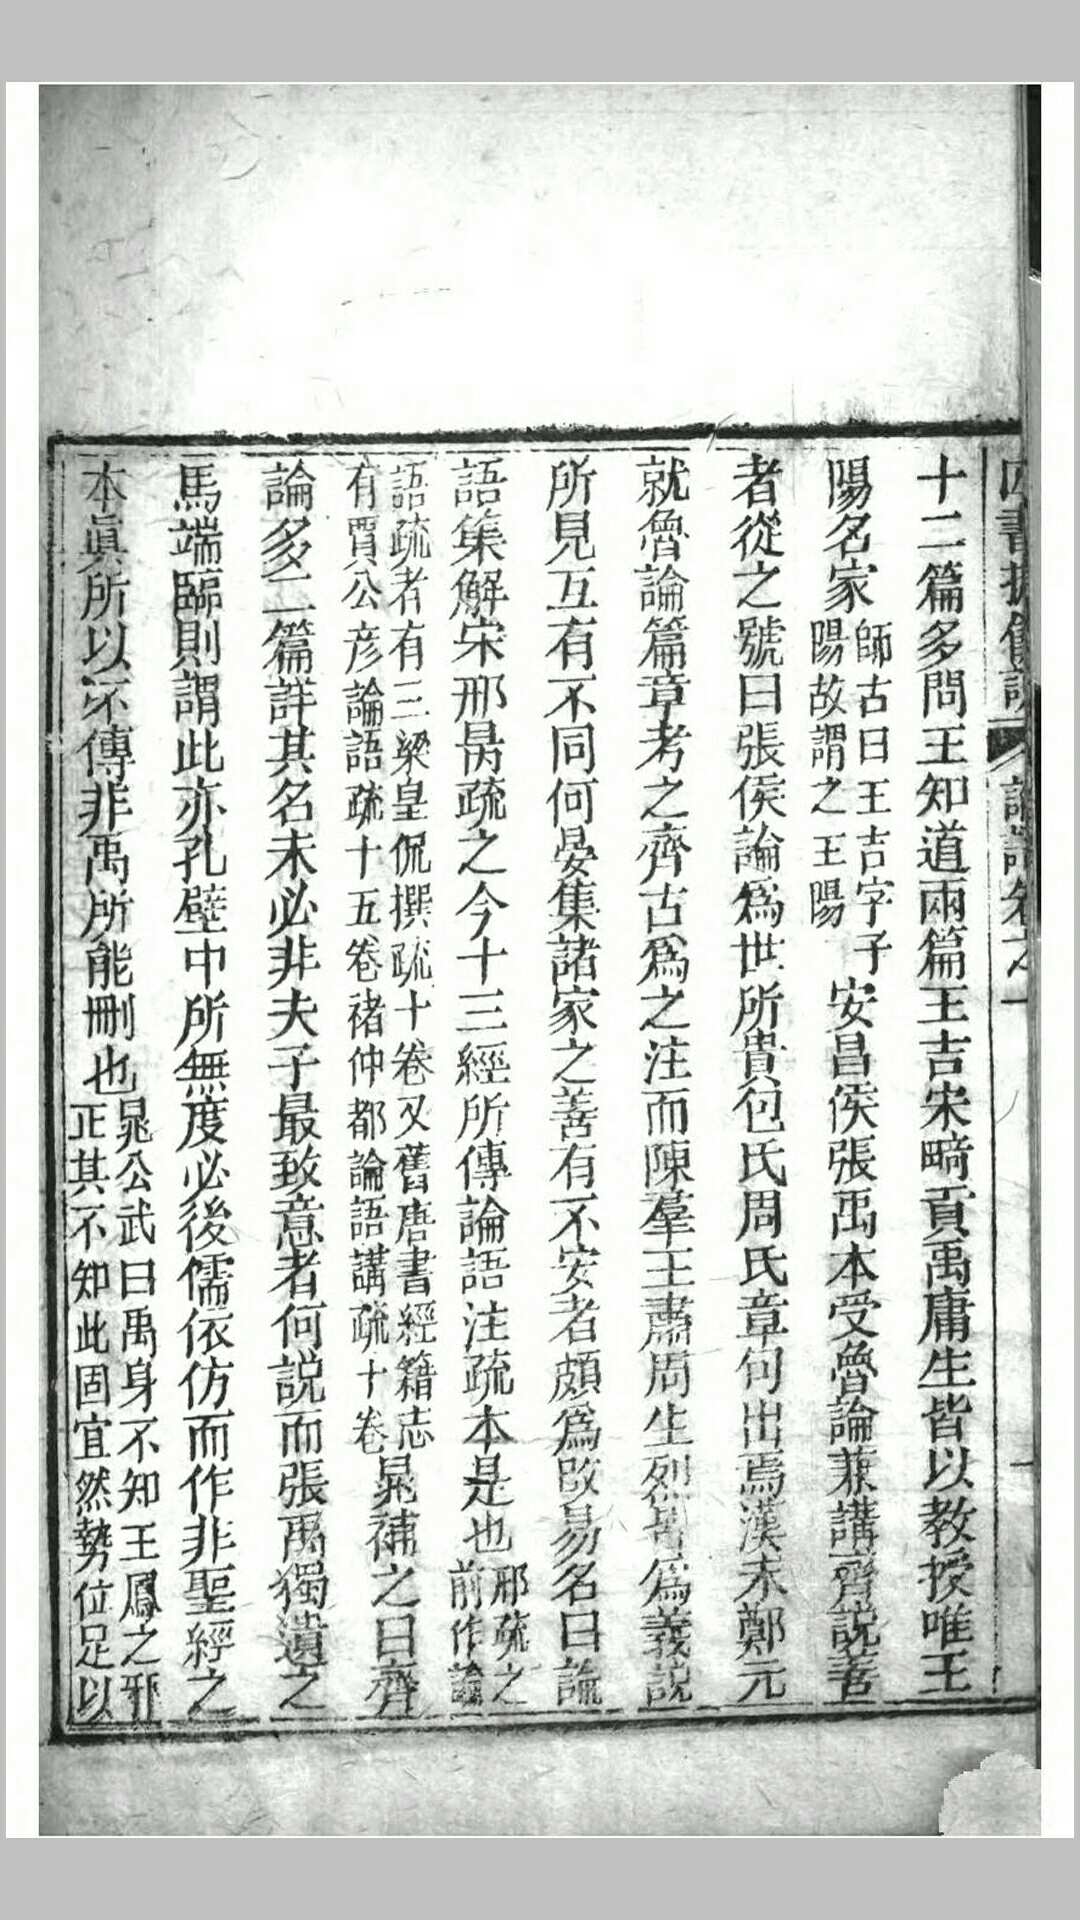 四書摭餘說 論語卷之一 一
十二篇多問王知道兩篇王吉宋畸貢禹庸生皆以教授唯王
陽名家師古曰王吉字子陽故謂之王陽安昌侯張禹本受魯論兼講齊説善
者從之號曰張侯論爲世所貴包氏周氏章句出焉漢末鄭元
就魯論篇章考之齊古爲之注而陳羣王肅周生烈皆爲義説
所見互有不同何晏集諸家之善有不安者頗爲改易名曰論
語集解宋邢昺疏之今十三經所傳論語注疏本是也邢疏之前作論
語疏者有三梁皇侃撰疏十卷又舊唐書經籍志有賈公彦論語疏十五卷褚仲都論語講疏十卷晁補之曰齊
論多二篇詳其名未必非夫子最致意者何説而張禹獨遺之
馬端臨則謂此亦孔壁中所無度必後儒依仿而作非聖經之
本眞所以不傳非禹所能刪也晁公武曰禹身不知王鳳之邪正其不知此固宜然勢位足以